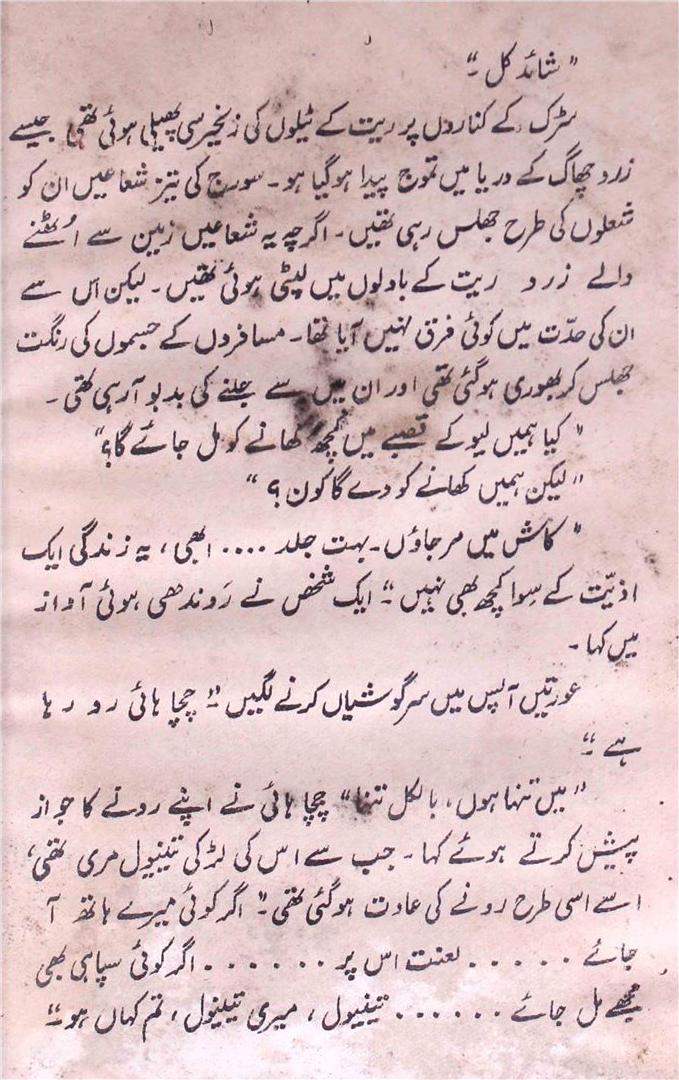 "شائد کل ۔"
سڑک کے کناروں پر ریت کے ٹیلوں کی زنجیر سی پھیلی ہوئی تھی جیسے
زرد جھاگ کے دریا میں تموج پیدا ہوگیا ہو۔ سورج کی تیز شعاعیں ان کو
شعلوں کی طرح جھلس رہی تھیں۔ اگرچہ یہ شعاعیں زمین سے اُٹھنے
والے زرد ریت کے بادلوں میں لپٹی ہوئی تھیں۔ لیکن اس سے
ان کی حدّت میں کوئی فرق نہیں آیا تھا۔ مسافروں کے جسموں کی رنگت
جھلس کر بھوری ہوگئی تھی اور ان میں سے جلنے کی بدبو آرہی تھی۔
"کیا ہمیں لیو کے قصبے میں کچھ کھانے کو مل جائے گا؟"
"لیکن ہمیں کھانے کو دے گا کون؟"
"کاش میں مرجاؤں۔ بہت جلد .... ابھی، یہ زندگی ایک
اذیّت کے سِوا کچھ بھی نہیں۔" ایک شخص نے رَوندھی ہوئی آواز
میں کہا۔
عورتیں آپس میں سرگوشیاں کرنے لگیں۔ "چچا ہائی رو رہا
ہے۔"
"میں تنہا ہوں، بالکل تنہا" چچا ہائی نے اپنے رونے کا جواز
پیش کرتے ہوئے کہا۔ جب سے اس کی لڑکی تینیول مری تھی،
اسے اسی طرح رونے کی عادت ہوگئی تھی۔ "اگر کوئی میرے ہاتھ آ
جائے ..... لعنت اس پر ...... اگر کوئی سپاہی بھی
مجھے مل جائے ...... تینیول، میری تینیول، تم کہاں ہو۔"